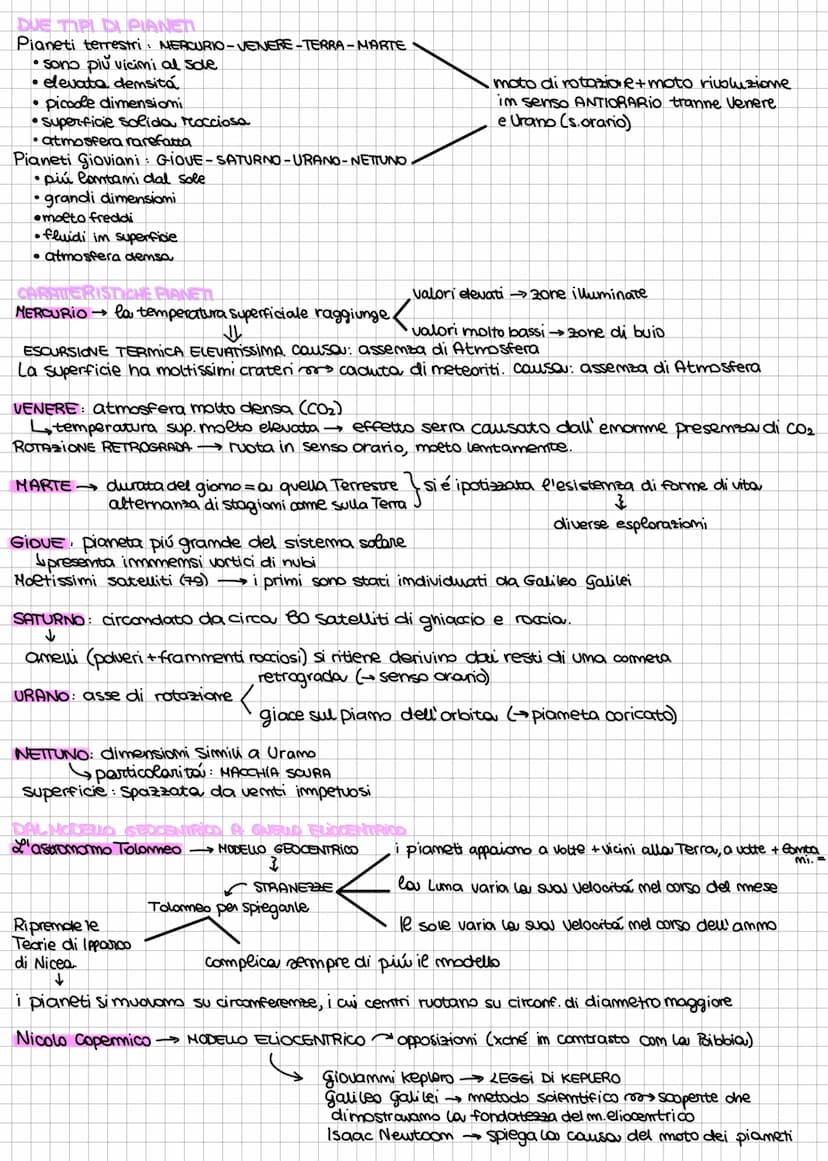 DUE TIPI DI PIANETI
Pianeti terrestri: MERCURIO-VENERE-TERRA-MARTE
• sono più vicini al sole
• elevata densitá
• piccole dimensioni
• superficie solida rocciosa
• atmosfera rarefatta
moto di rotazione+moto rivoluzione
in senso ANTIORARIO tranne Venere
e Urano (s.orario)
Pianeti gioviani: GIOVE-SATURNO-URANO-NETTUNO
• piú lontani dal sole
• grandi dimensioni
• molto freddi
• fluidi in superficie
• atmosfera densa
CARATTERISTICHE PIANETI
MERCURIO → la temperatura superficiale raggiunge
valori elevati → zone illuminate
valori molto bassi → zone di buio
⇓
ESCURSIONE TERMICA ELEVATISSIMA. causa: assenza di Atmosfera
La superficie ha moltissimi crateri → caduta di meteoriti. causa: assenza di Atmosfera
VENERE: atmosfera molto densa (CO₂)
↳ temperatura sup. molto elevata → effetto serra causato dall'enorme presenza di CO₂
ROTAZIONE RETROGRADA → ruota in senso orario, molto lentamente.
MARTE → durata del giorno = a quella Terrestre
alternanza di stagioni come sulla Terra
} si é ipotizzata l'esistenza di forme di vita
↓
diverse esplorazioni
GIOVE: pianeta piú grande del sistema solare
↳ presenta immensi vortici di nubi
Moltissimi satelliti (79) → i primi sono stati individuati da Galileo Galilei
SATURNO: circondato da circa 80 satelliti di ghiaccio e roccia.
↓
anelli (polveri+frammenti rocciosi) si ritiene derivino dai resti di una cometa
URANO: asse di rotazione
retrograda (→ senso orario)
giace sul piano dell'orbita (→ pianeta coricato)
NETTUNO: dimensioni simili a Urano
↳ particolaritá: MACCHIA SCURA
superficie: spazzata da venti impetuosi
DAL MODELLO GEOCENTRICO A QUELLO ELIOCENTRICO
L'astronomo Tolomeo → MODELLO GEOCENTRICO
↓
STRANEZZE
i pianeti appaiono a volte + vicini alla Terra, a volte + lonta
ni. =
la Luna varia la sua velocitá nel corso del mese
Il sole varia la sua velocitá nel corso dell'anno
Tolomeo per spiegarle
Riprende le
Teorie di Ipparco
di Nicea
↓
complica sempre di piú il modello
i pianeti si muovono su circonferenze, i cui centri ruotano su circonf. di diametro maggiore
Nicolo Copernico → MODELLO ELIOCENTRICO → opposizioni (xché in contrasto con la Bibbia)
Giovanni Keplero → LEGGI DI KEPLERO
Galileo Galilei → metodo scientifico → scoperte che
dimostravano la fondatezza del m.eliocentrico
Isaac Newtoon → spiega la causa del moto dei pianeti